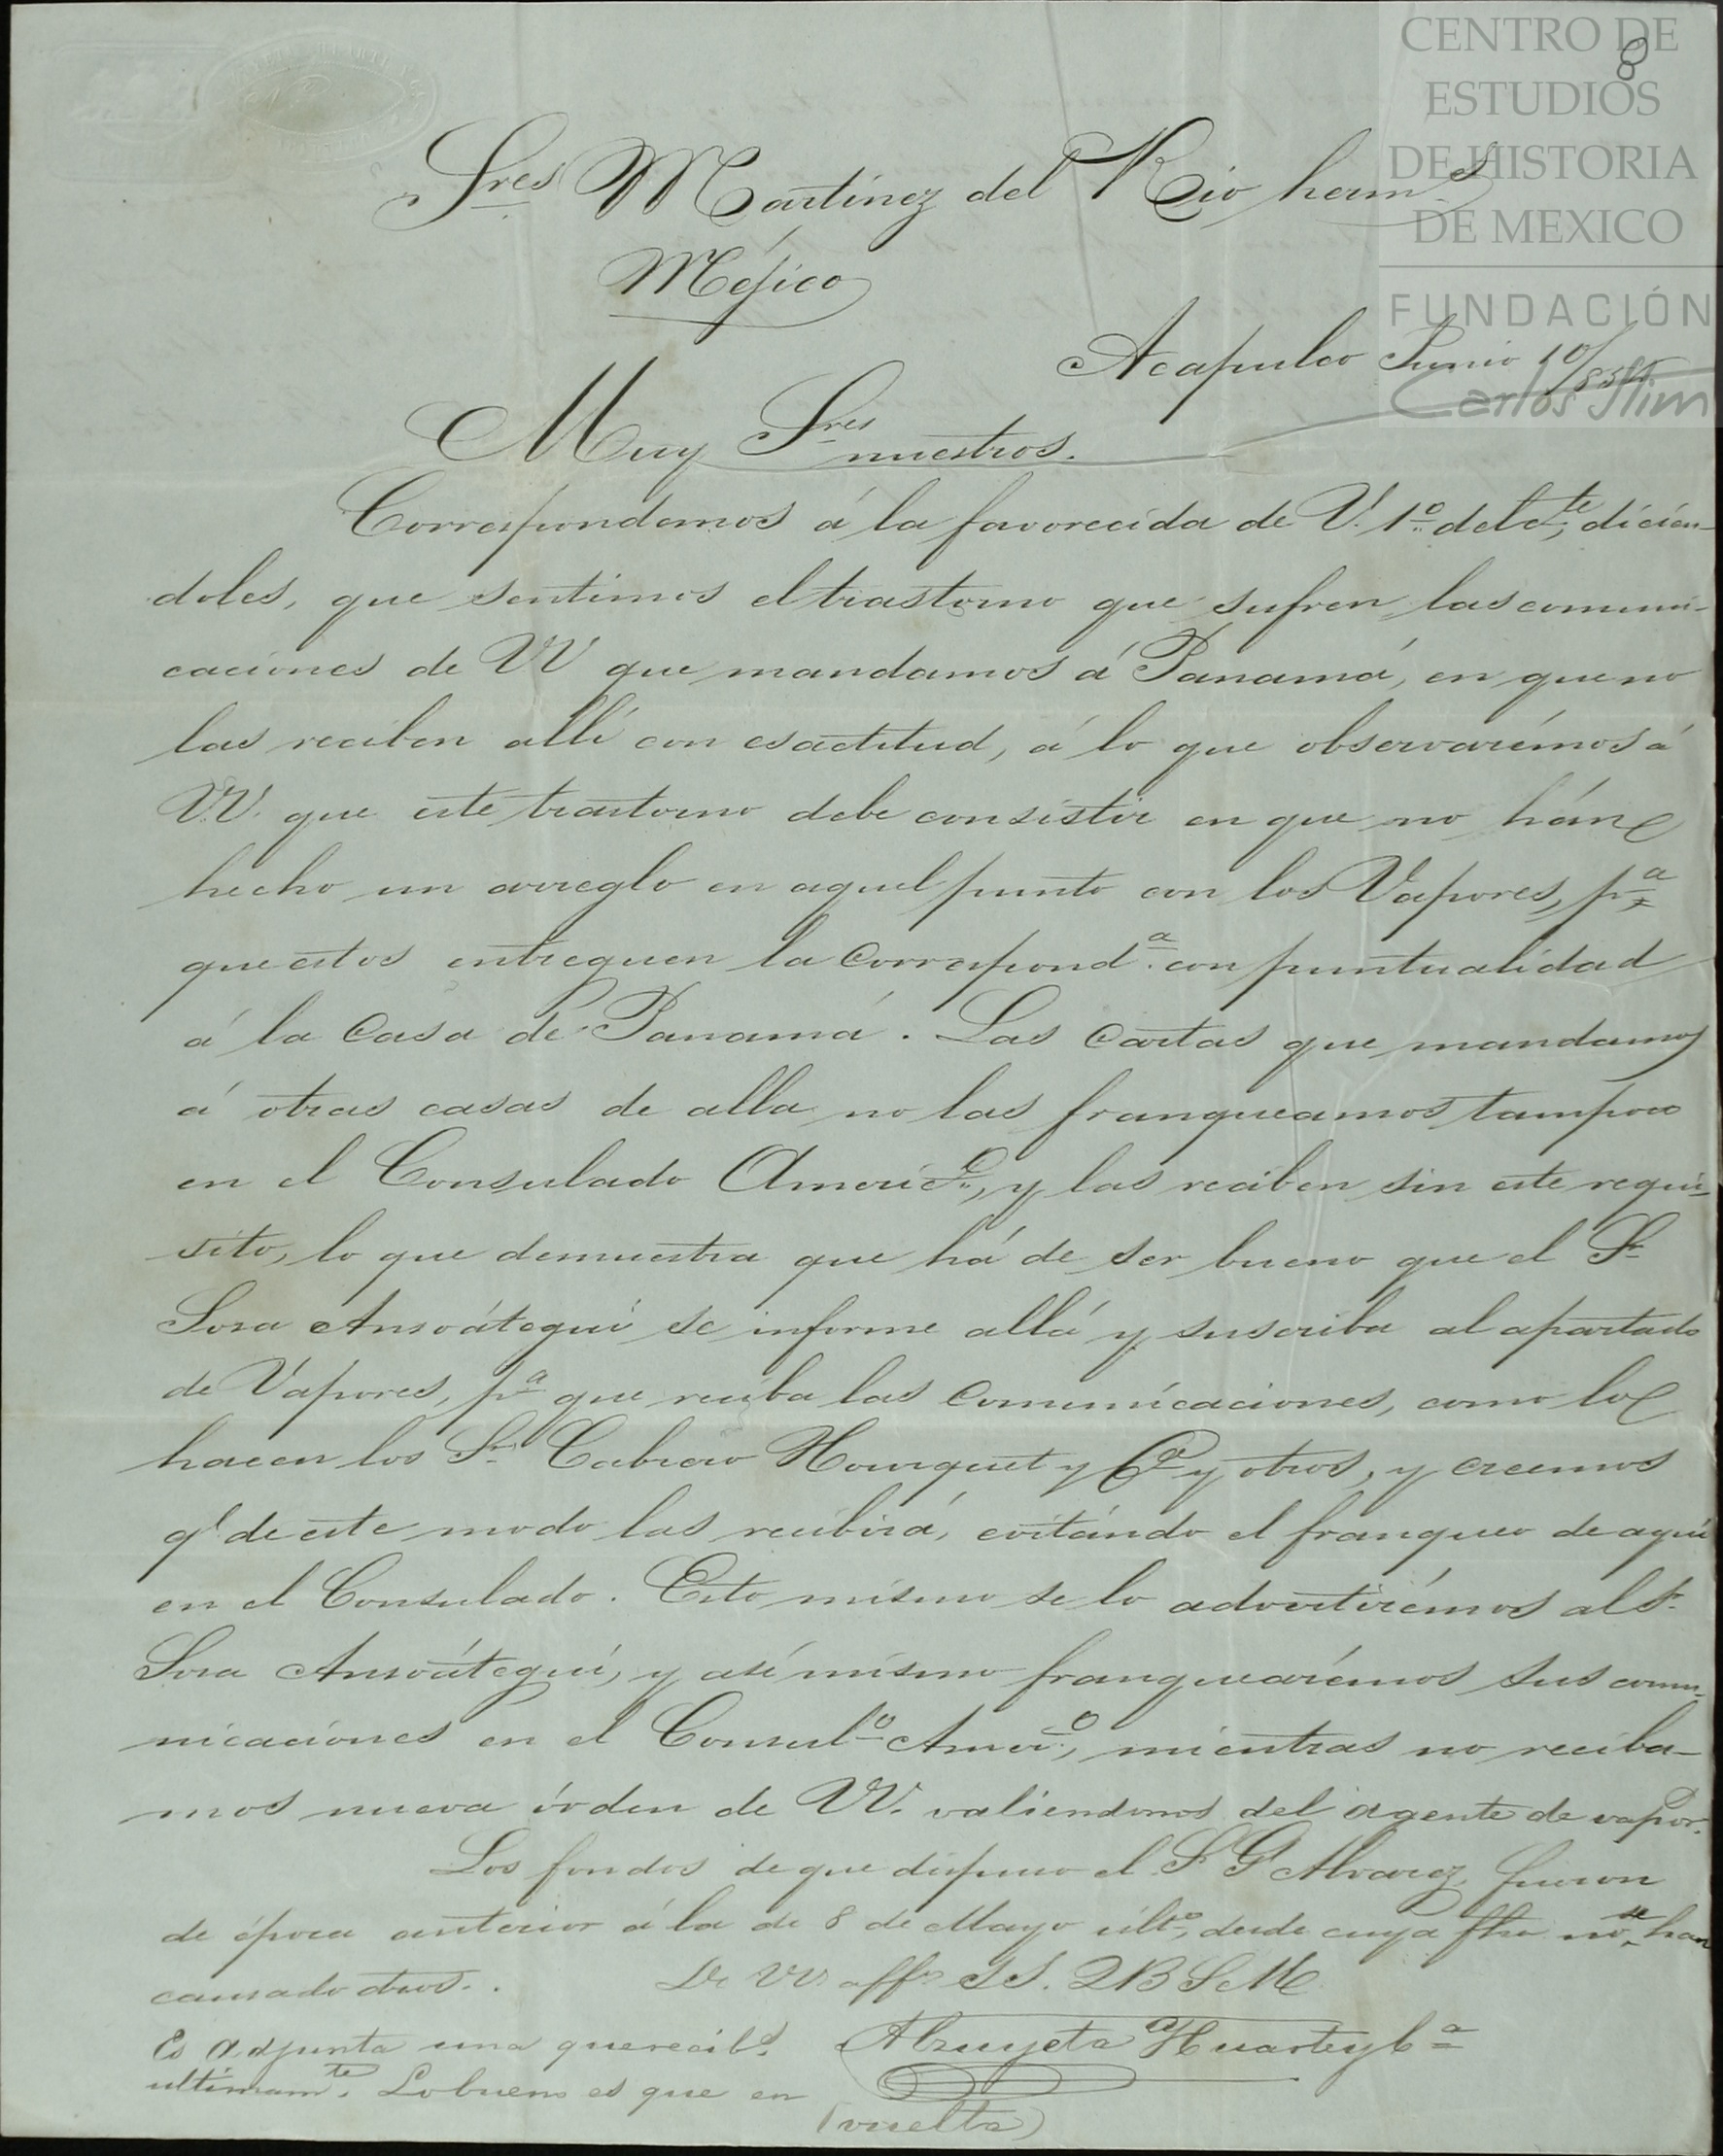 CENTRO DE
ESTUDIOS
DE HISTORIA
DE MEXICO
FUNDACIÓN
Carlos Slim
8
Sres Martinez del Rio herms
Méjico
Acapulco Junio 10/854
Muy Sres nuestros.
Correspondemos á la favorecida de V. 1º del cte, dicien-
doles, que sentimos el trastorno que sufren las comuni-
caciones de VV que mandamos á Panamá, en que no
las reciben allí con esactitud, á lo que observarémos á
VV. que este trastorno debe consistir en que no hán
hecho un arreglo en aquel punto con los Vapores, pa
que estos entreguen la correspond.a con puntualidad
á la Casa de Panamá. Las Cartas que mandamos
á otras casas de alla no las franqueamos tampoco
en el Consulado Americo, y las reciben sin este requi-
sito, lo que demuestra que há de ser bueno que el Sr
Sosa Ansoátegui se informe allá y suscriba al apartado
de Vapores, pa que reciba las Comunicaciones, como lo
hacen los Srs Cabrero Hourquet y Ca y otros, y creemos
q.e de este modo las recibirá, evitándo el franqueo de aquí
en el Consulado. Esto mismo se lo advertirémos al Sr
Sosa Ansoátegui, y asi mismo franquearémos sus comu-
nicaciones en el Consul.o Amer.o, mientras no reciba-
mos nueva órden de VV. valiendonos del agente de vapor.s
Los fondos de que dispuso el S. G. Alvarez, fueron
de época anterior á la de 8 de Mayo últo, desde cuya fha no se han
causado otros.
De VV. affs SS. Q B S M
Alzuyeta Huarte y Ca
Es Adjunta una que recib.s
ultimam.te Lo bueno es que en
(vuelta)